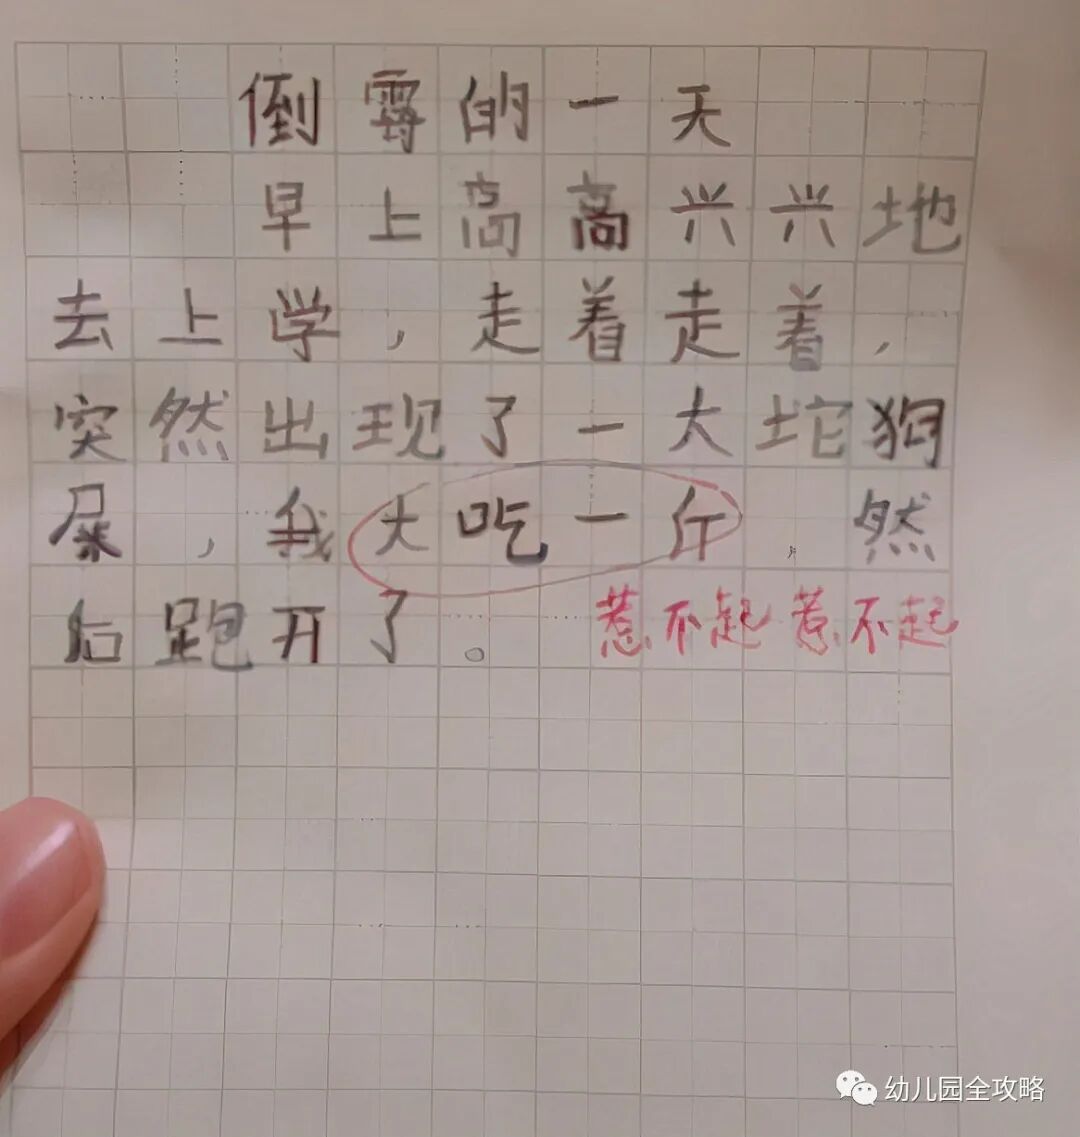 倒霉的一天
早上高高兴兴地
去上学，走着走着，
突然出现了一大坨狗
屎，我大吃一斤，然
后跑开了。
惹不起惹不起
幼儿园全攻略